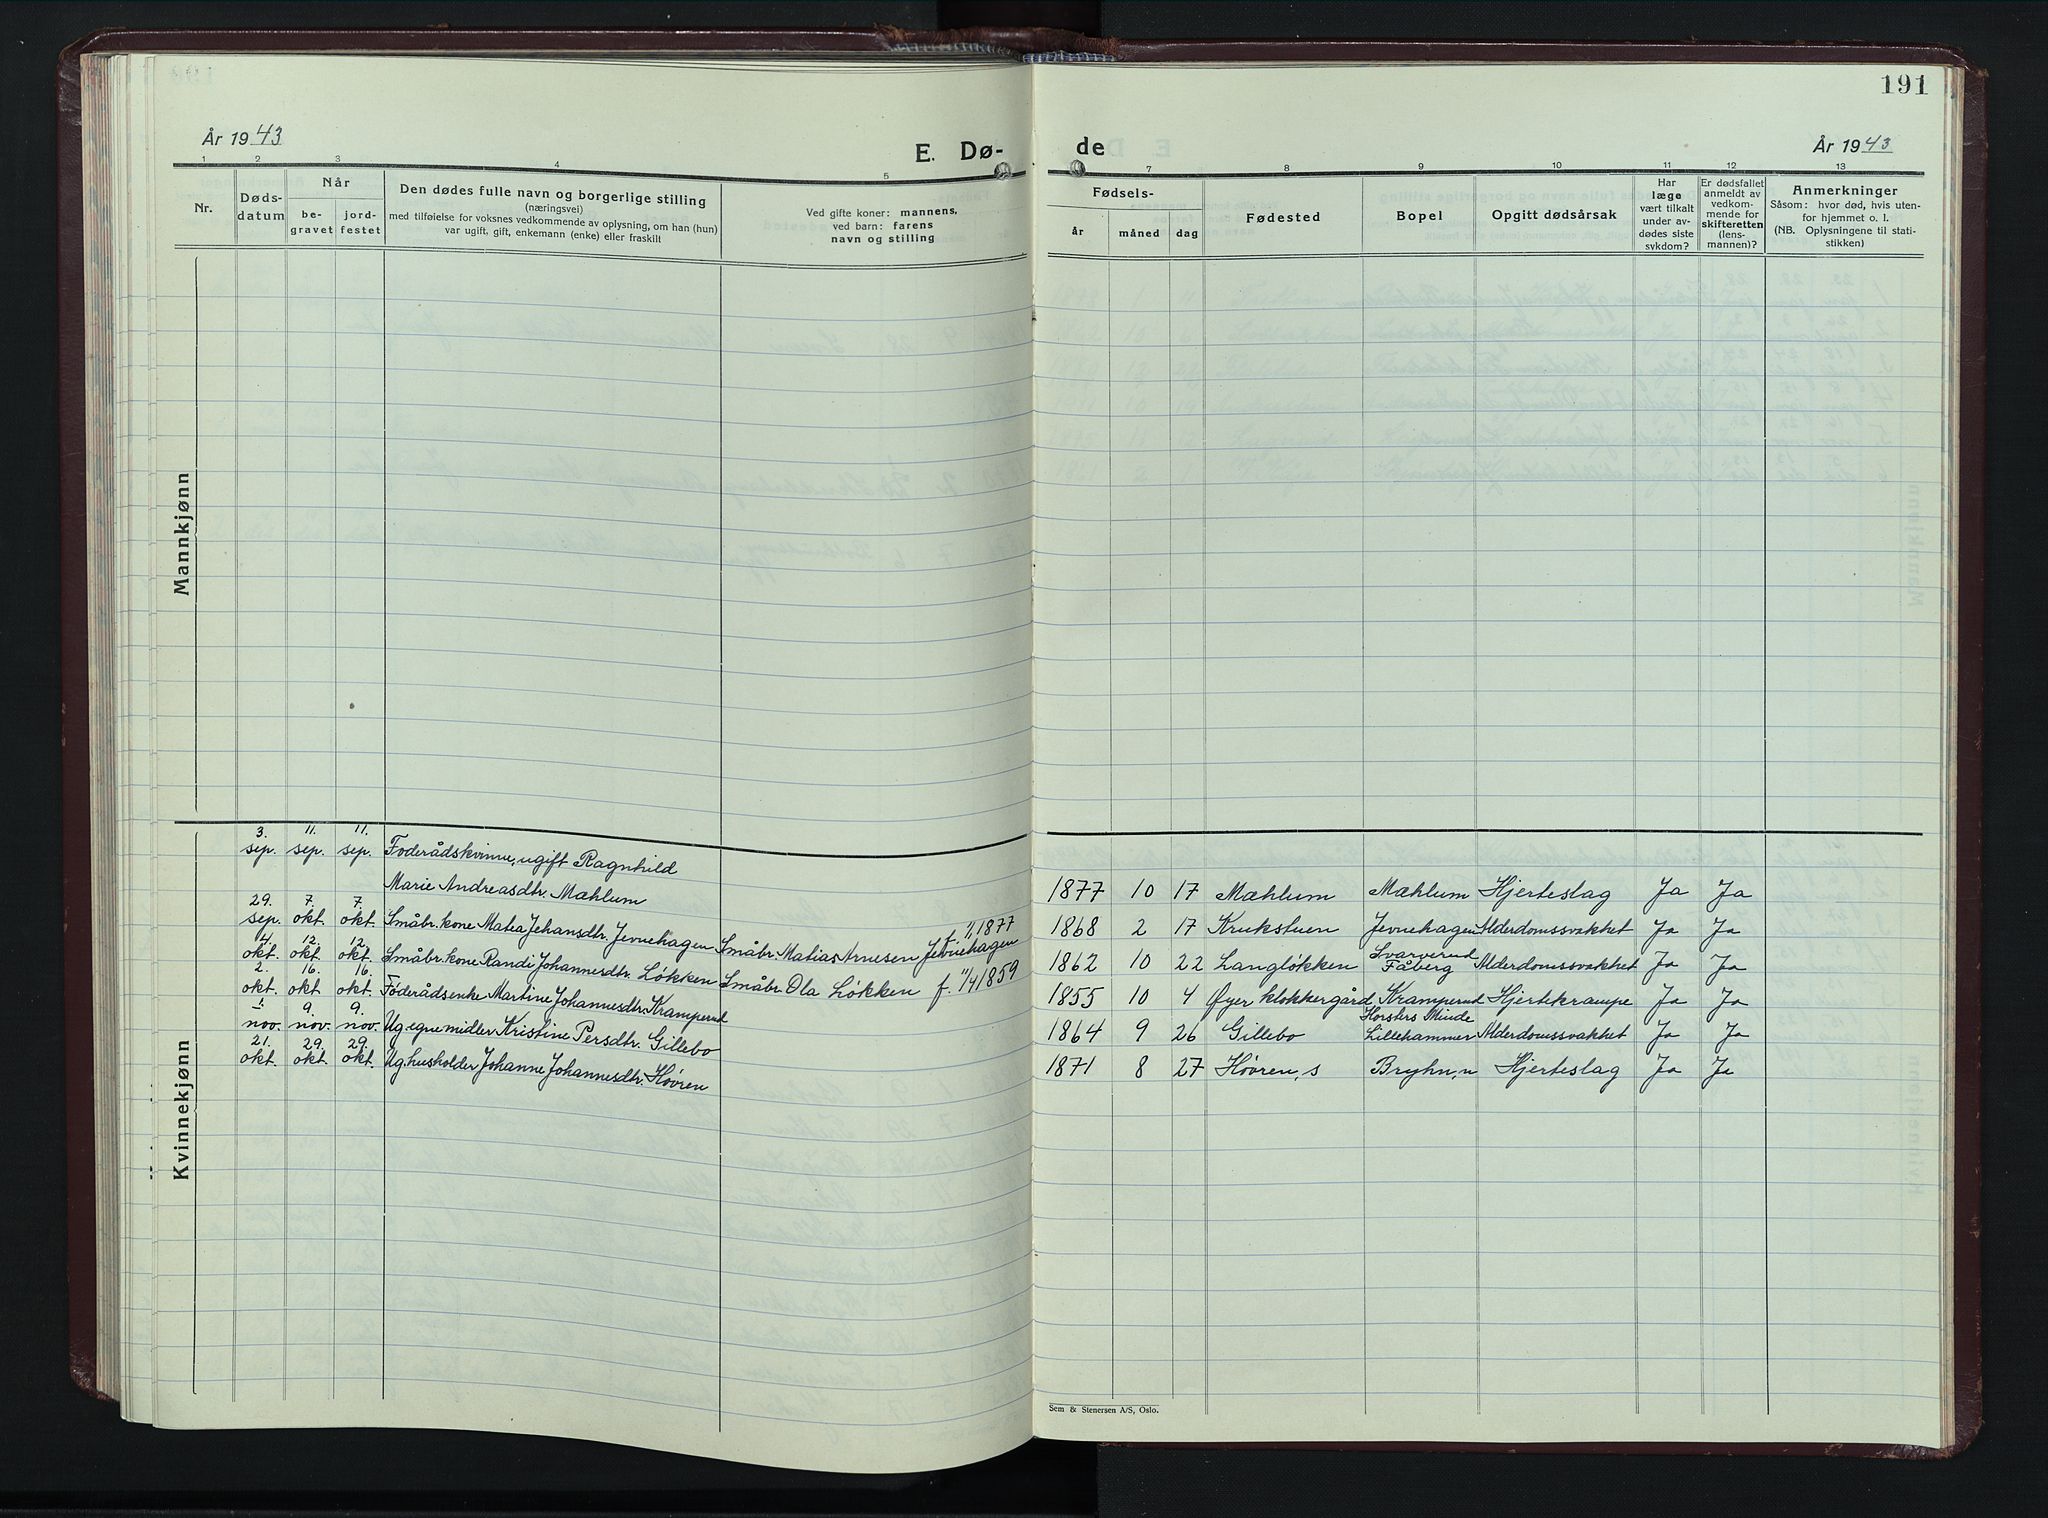 191
År 1943
E. Dø-
de
År 1943
1 2 3 4 5 7 8 10 11 12 13
Nr.
Døds-
datum
Når
be-
gravet
jord-
festet
Den dødes fulle navn og borgerlige stilling
(næringsvei)
med tilføielse for voksnes vedkommende av oplysning, om han (hun)
var ugift, gift, enkemann (enke) eller fraskilt
Ved gifte koner: mannens,
ved barn: farens
navn og stilling
Fødsels-
år
måned
dag
Fødested
Bopel
Opgitt dødsårsak
Har
læge
vært tilkalt
under av-
dødes siste
sykdom?
Er dødsfallet
anmeldt av
vedkom-
mende for
skifteretten
(lens-
mannen)?
Anmerkninger
Såsom: hvor død, hvis uten-
for hjemmet o. l.
(NB. Oplysningene til stati-
stikken)
Mannkjønn
Kvinnekjønn
3. 11. 11.
sep. sep. sep. Foderådskvinne, ugift Ragnhild
Marie Andreasdtr. Mæhlum 1877 10 17 Mæhlum Mæhlum Hjerteslag Ja Ja
29. 7. 7.
sep. okt. okt. Småbr.kone Matea Johansdtr. Jevnehagen Småbr. Matias Arnesen Jevnehagen 1877 1868 2 17 Krukstuen Jevnehagen Alderdomssvakhet Ja Ja
4. 12. 12.
okt. okt. okt. Småbr.kone Randi Johannesdtr. Løkken Småbr. Ola Løkken f. 11/4 1859 1862 10 22 Langløkken Svarverud Fåberg Alderdomssvakhet Ja Ja
2. 16. 16.
okt. okt. okt. Føderådsenke Martine Johannesdtr. Kramperud 1855 10 4 Øyer klokkergård Kramperud Hjertekrampe Ja Ja
1. 9. 9.
nov. nov. nov. Ug. egne midler Kristine Persdtr. Gillebo 1864 9 26 Gillebo Horsters Minde Lillehammer Alderdomssvakhet Ja Ja
21. 29. 29.
okt. okt. okt. Ug. husholder Johanne Johannesdtr. Høvren 1871 8 27 Høvren, s Bryhn, n Hjerteslag Ja Ja
Sem & Stenersen A/S, Oslo.